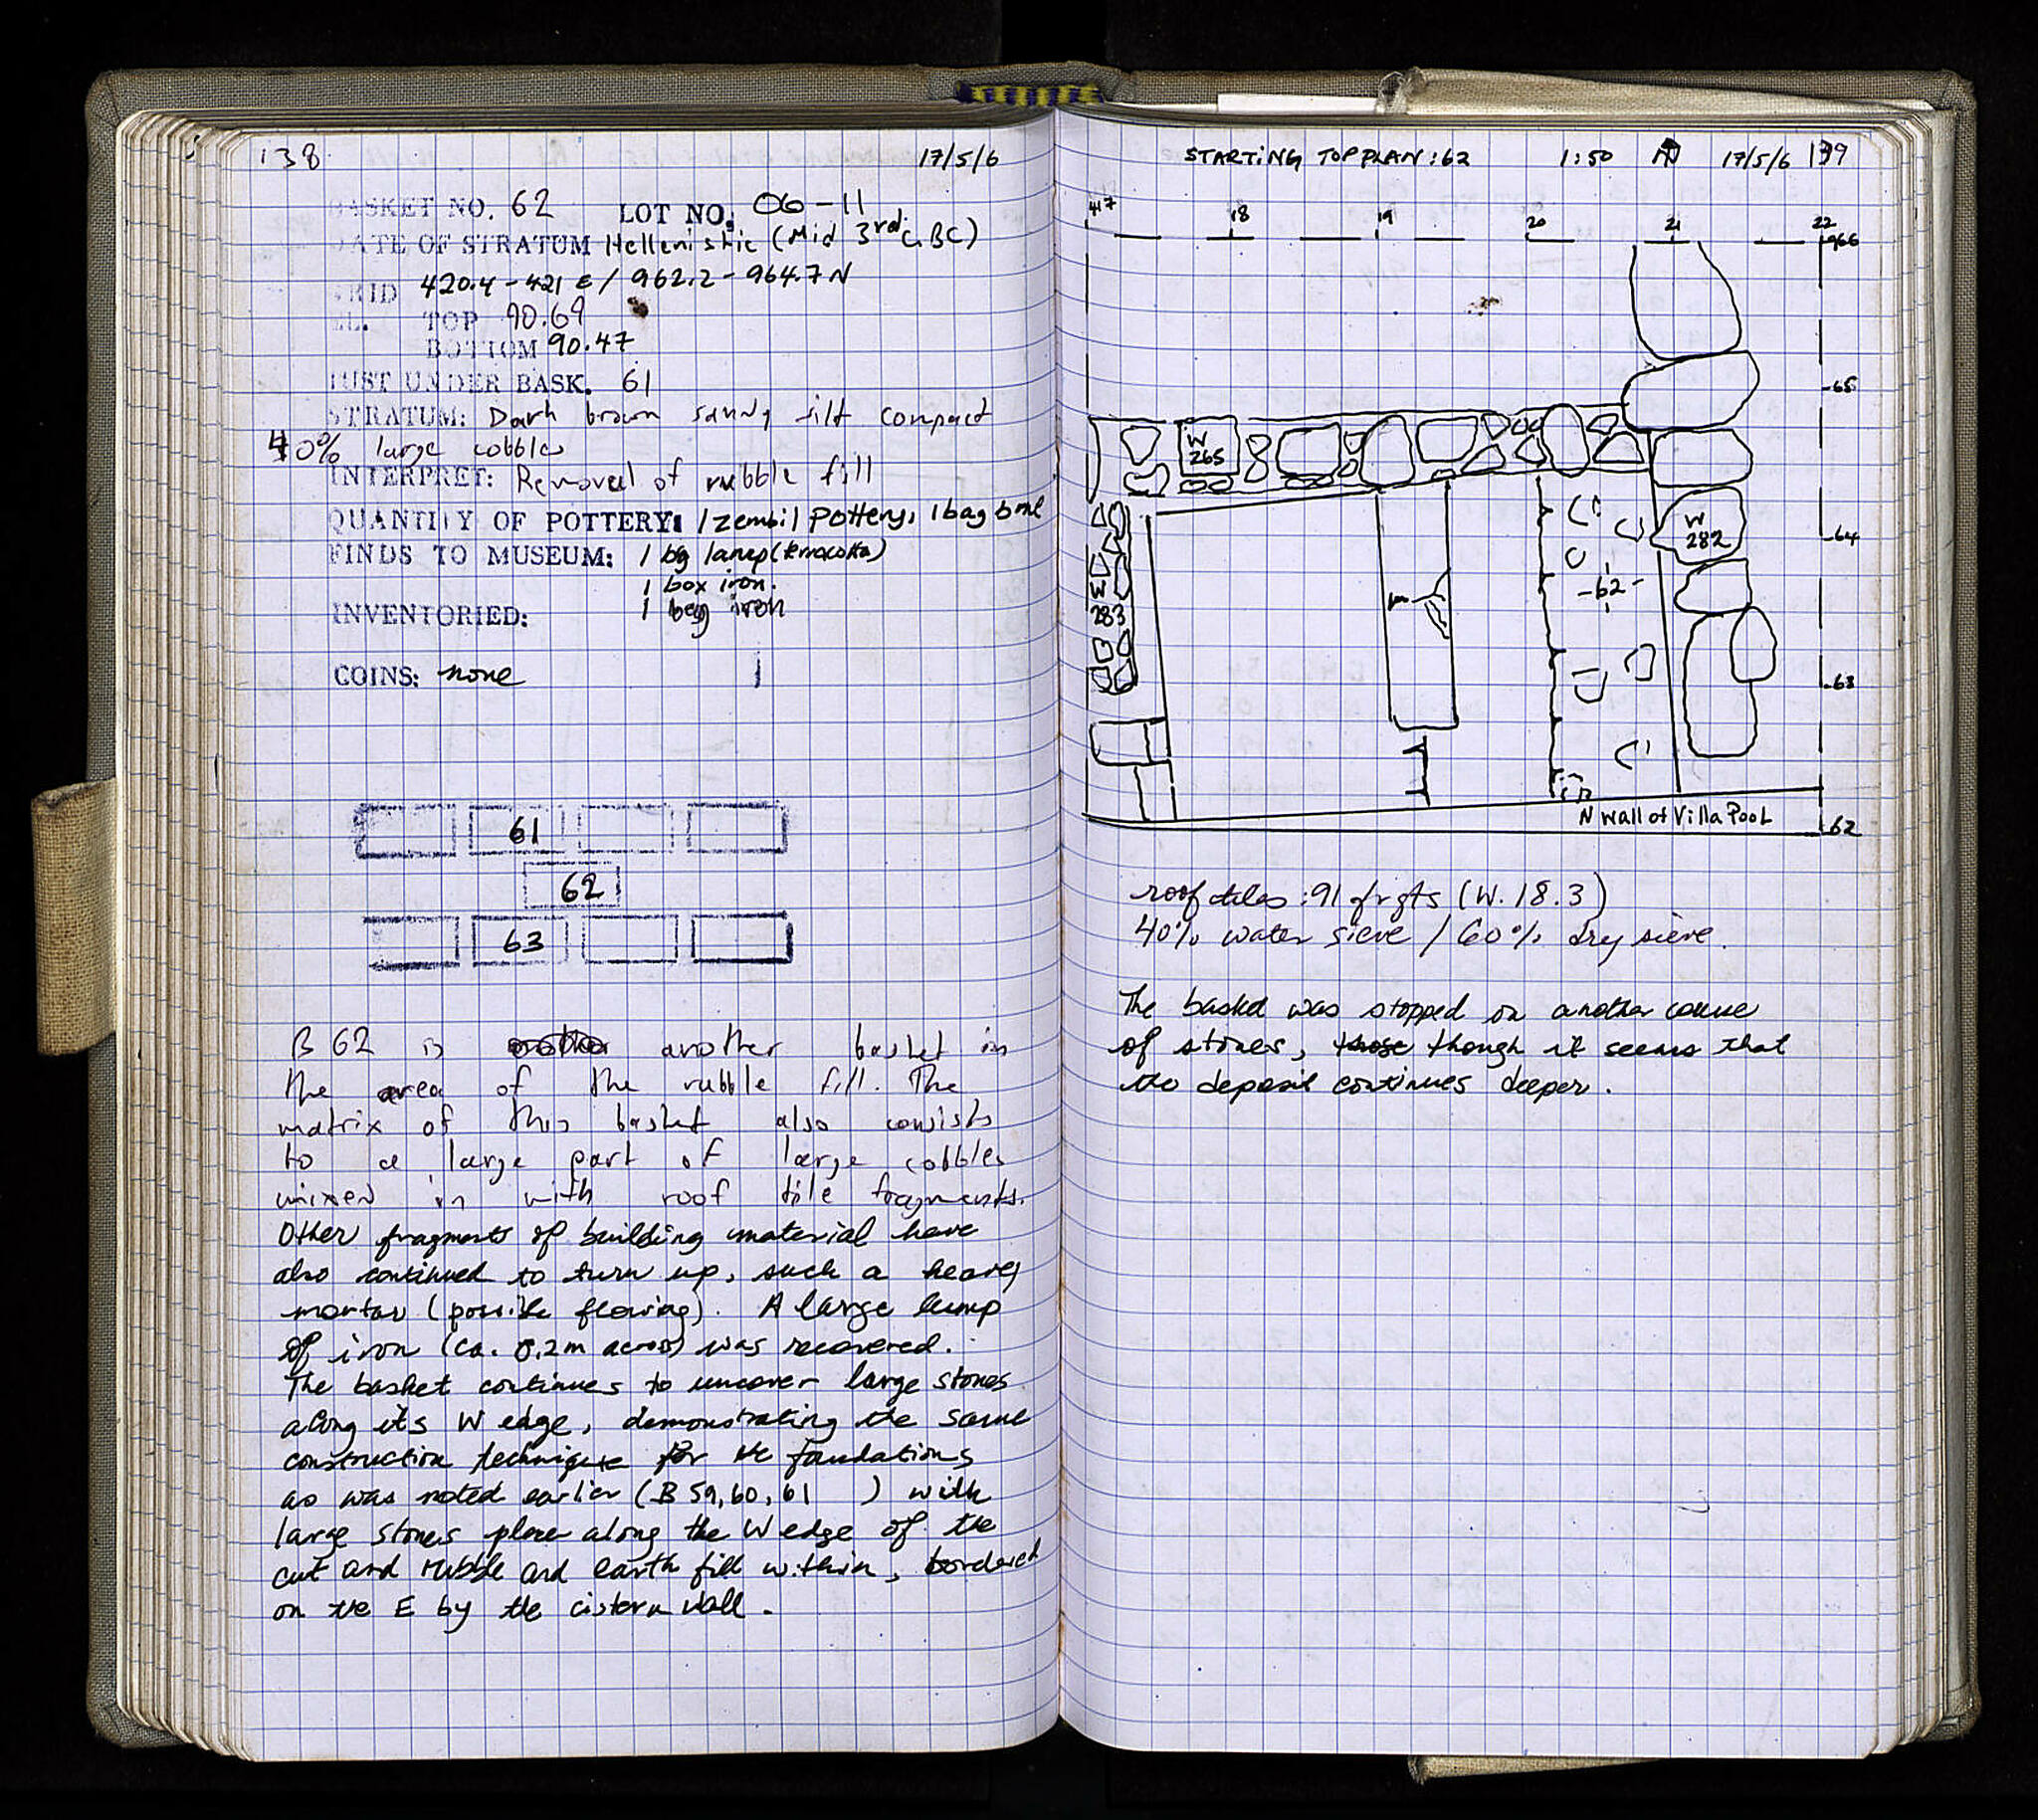 138 17/5/6
BASKET NO. 62 LOT NO. 06-11
DATE OF STRATUM Hellenistic (Mid 3rd c. BC)
GRID 420.4-421 E / 962.2-964.7 N
EL. TOP 90.69
BOTTOM 90.47
JUST UNDER BASK. 61
STRATUM: Dark brown sandy silt compact
40% large cobbles
INTERPRET: Removal of rubble fill
QUANTITY OF POTTERY: 1 zembil pottery, 1 bag bone
FINDS TO MUSEUM: 1 bg lamp (terracotta)
1 box iron.
INVENTORIED: 1 bag iron
COINS: none
61
62
63
B 62 is another basket in
the area of the rubble fill. The
matrix of this basket also consists
to a large part of large cobbles
mixed in with roof tile fragments.
Other fragments of building material have
also continued to turn up, such a heavy
mortar (possible flooring). A large lump
of iron (ca. 0.2m across) was recovered.
The basket continues to uncover large stones
along its W edge, demonstrating the same
construction technique for the foundations
as was noted earlier (B 59, 60, 61 ) with
large stones place along the W edge of the
cut and rubble and earth fill within, bordered
on the E by the cistern wall.
STARTING TOP PLAN: 62 1:50 N 17/5/6 139
417 18 19 20 21 22
966
65
W 265
W 282
64
-62-
W 283
63
N Wall of Villa Pool
62
roof tiles: 91 frgts (W. 18.3)
40% water sieve / 60% dry sieve.
The basket was stopped on another course
of stones, those though it seems that
the deposit continues deeper.